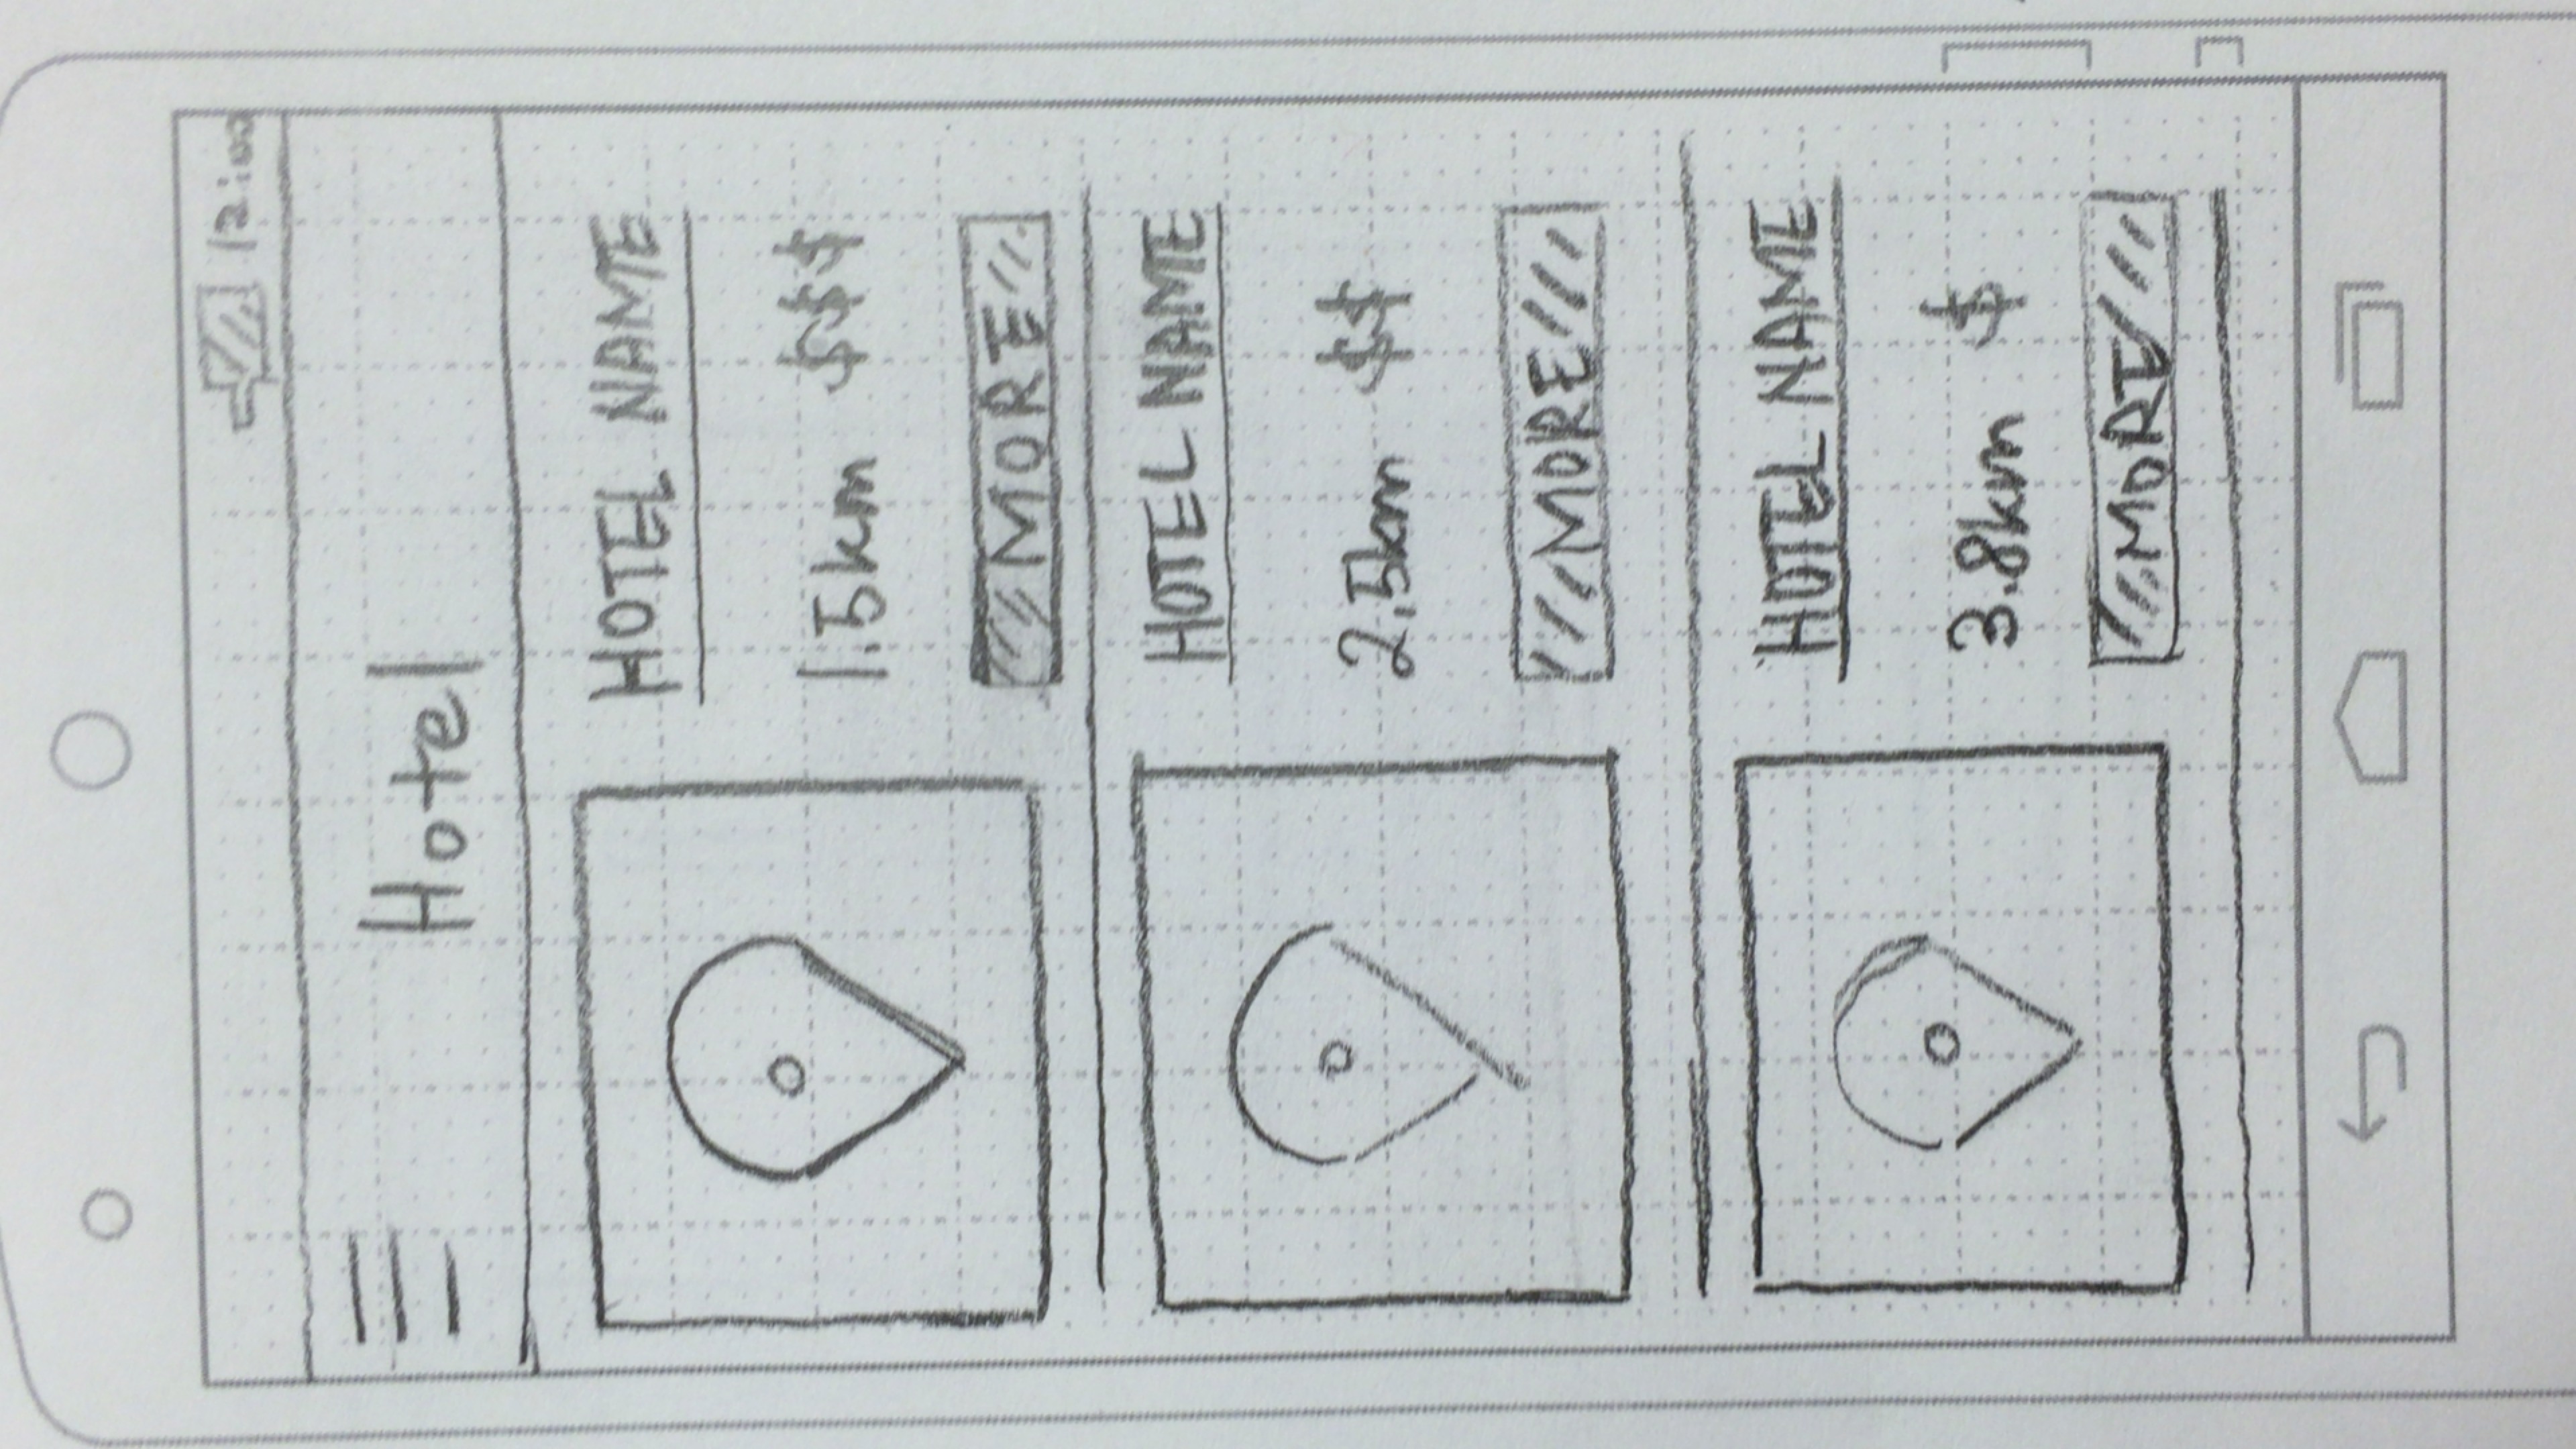 12:00
Hotel
HOTEL NAME
1.5km $$$
MORE
HOTEL NAME
2.5km $$
MORE
HOTEL NAME
3.8km $
MORE